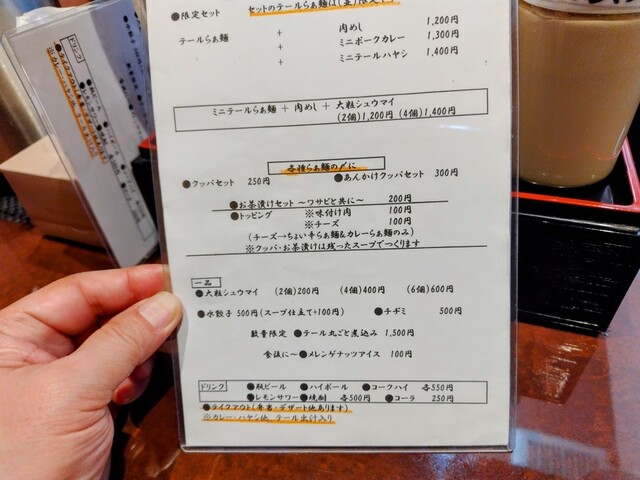 セットのテールらぁ麺は(並)限定、
●限定セット
テールらぁ麺 + 肉めし 1,200円
+ ミニポークカレー 1,300円
+ ミニテールハヤシ 1,400円
ミニテールらぁ麺 + 肉めし + 大粒シュウマイ
(2個)1,200円 (4個)1,400円
各種らぁ麺の〆に
●クッパセット 250円 ●あんかけクッパセット 300円
●お茶漬けセット ～ワサビと共に～ 200円
●トッピング ※味付け肉 100円
※チーズ 100円
(チーズ→ちょい辛らぁ麺&カレーらぁ麺のみ)
※クッパ・お茶漬けは残ったスープでつくります
一品
●大粒シュウマイ (2個)200円 (4個)400円 (6個)600円
●水餃子 500円(スープ仕立て+100円) ●チヂミ 500円
数量限定 ●テール丸ごと煮込み 1,500円
食後に～ ●メレンゲナッツアイス 100円
ドリンク ●瓶ビール ●ハイボール ●コークハイ 各550円
●レモンサワー ●焼酎 各500円 ●コーラ 250円
●テイクアウト(弁当・デザート他あります)
※カレー・ハヤシ他、テール出汁入り